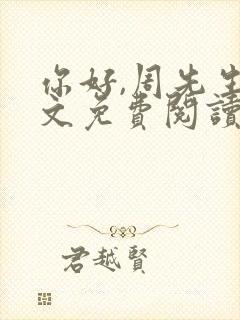 你好,周先生
文免費閱讀
君越賢